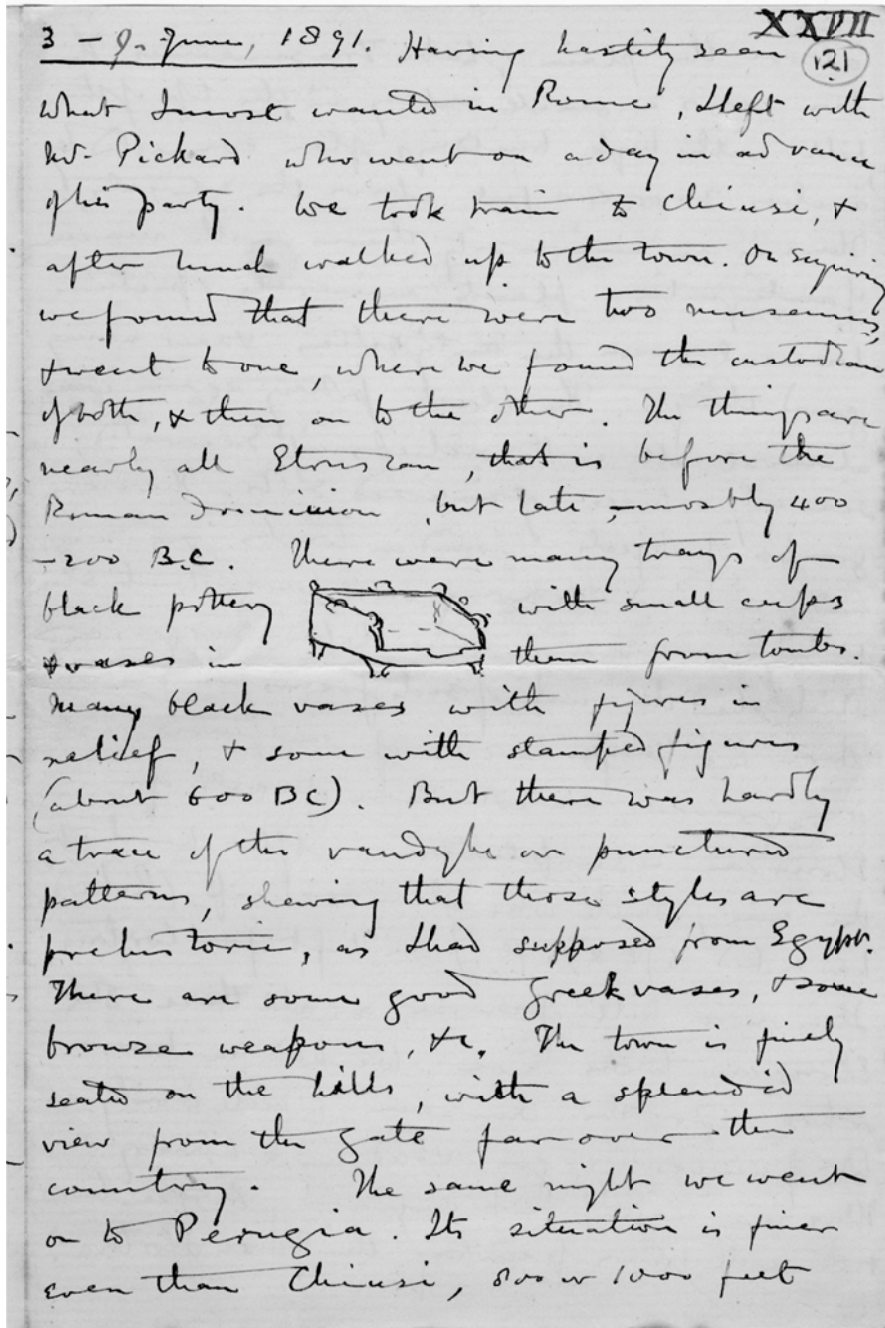 XXVII
3 - 9. June, 1891. Having hastily seen
121
what I most wanted in Rome, I left with
Mr. Pickard who went on a day in advance
of his party. We took train to Chiusi, &
after lunch walked up to the town. On enquiring
we found that there were two museums,
& went to one, where we found the custodian
of both, & then on to the other. The things are
nearly all Etruscan, that is before the
Roman dominion, but late, - mostly 400
- 200 B.C. There were many trays of
black pottery with small cups
& vases in them from tombs.
Many black vases with figures in
relief, & some with stamped figures
(about 600 BC). But there was hardly
a trace of the vandyke or punctured
patterns, shewing that those styles are
prehistoric, as I had supposed from Egypt.
There are some good Greek vases, & some
bronze weapons, &c. The town is finely
seated on the hills, with a splendid
view from the gate far over the
country. The same night we went
on to Perugia. Its situation is finer
even than Chiusi, 800 or 1000 feet